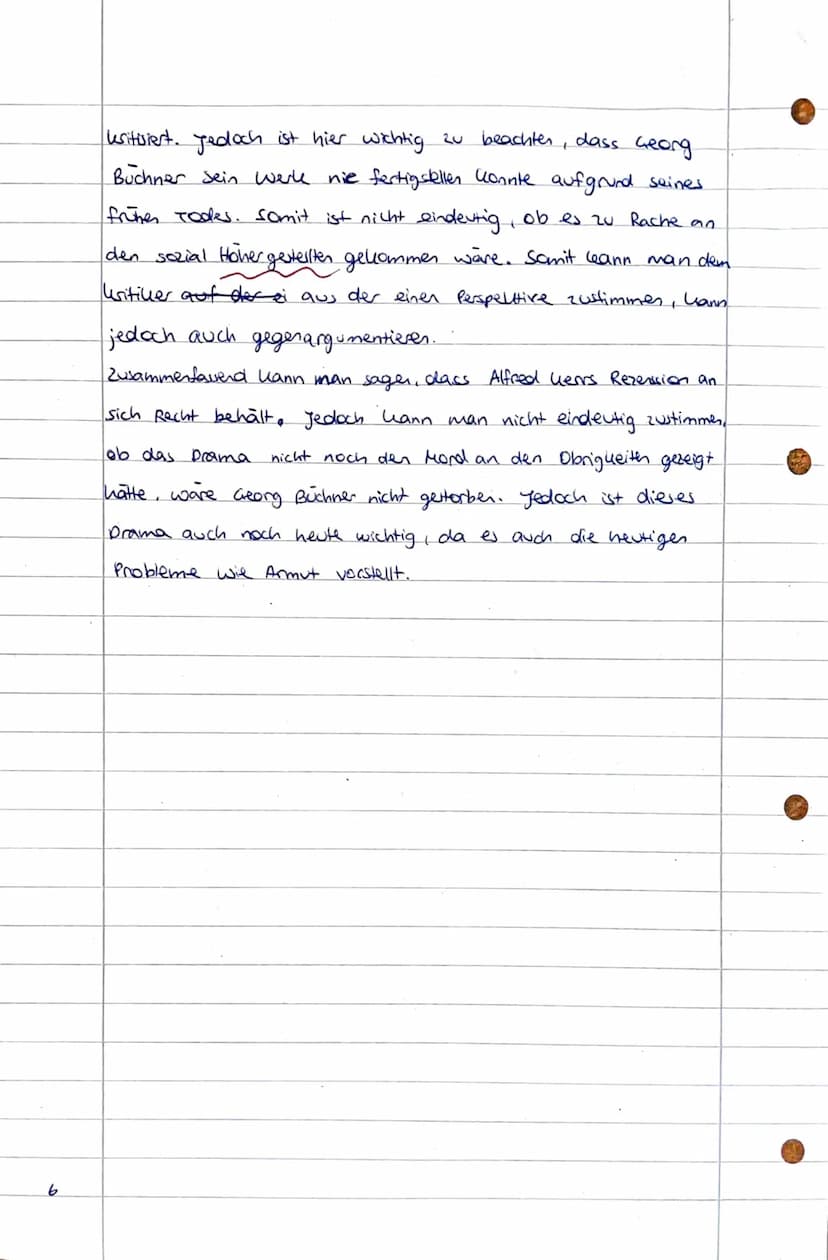 kritisiert. Jedoch ist hier wichtig zu beachten, dass Georg
Büchner sein Werk nie fertigstellen konnte aufgrund seines
frühen Todes. Somit ist nicht eindeutig, ob es zu Rache an
den sozial Höhergestellten gekommen wäre. Somit kann man dem
Kritiker auf der ei aus der einen Perspektive zustimmen, kann
jedoch auch gegenargumentieren.
Zusammenfassend kann man sagen, dass Alfred Kerrs Rezension an
sich Recht behält. Jedoch kann man nicht eindeutig zustimmen,
ob das Drama nicht noch den Mord an den Obrigkeiten gezeigt
hätte, wäre Georg Büchner nicht gestorben. Jedoch ist dieses
Drama auch noch heute wichtig, da es auch die heutigen
Probleme wie Armut vorstellt.
6